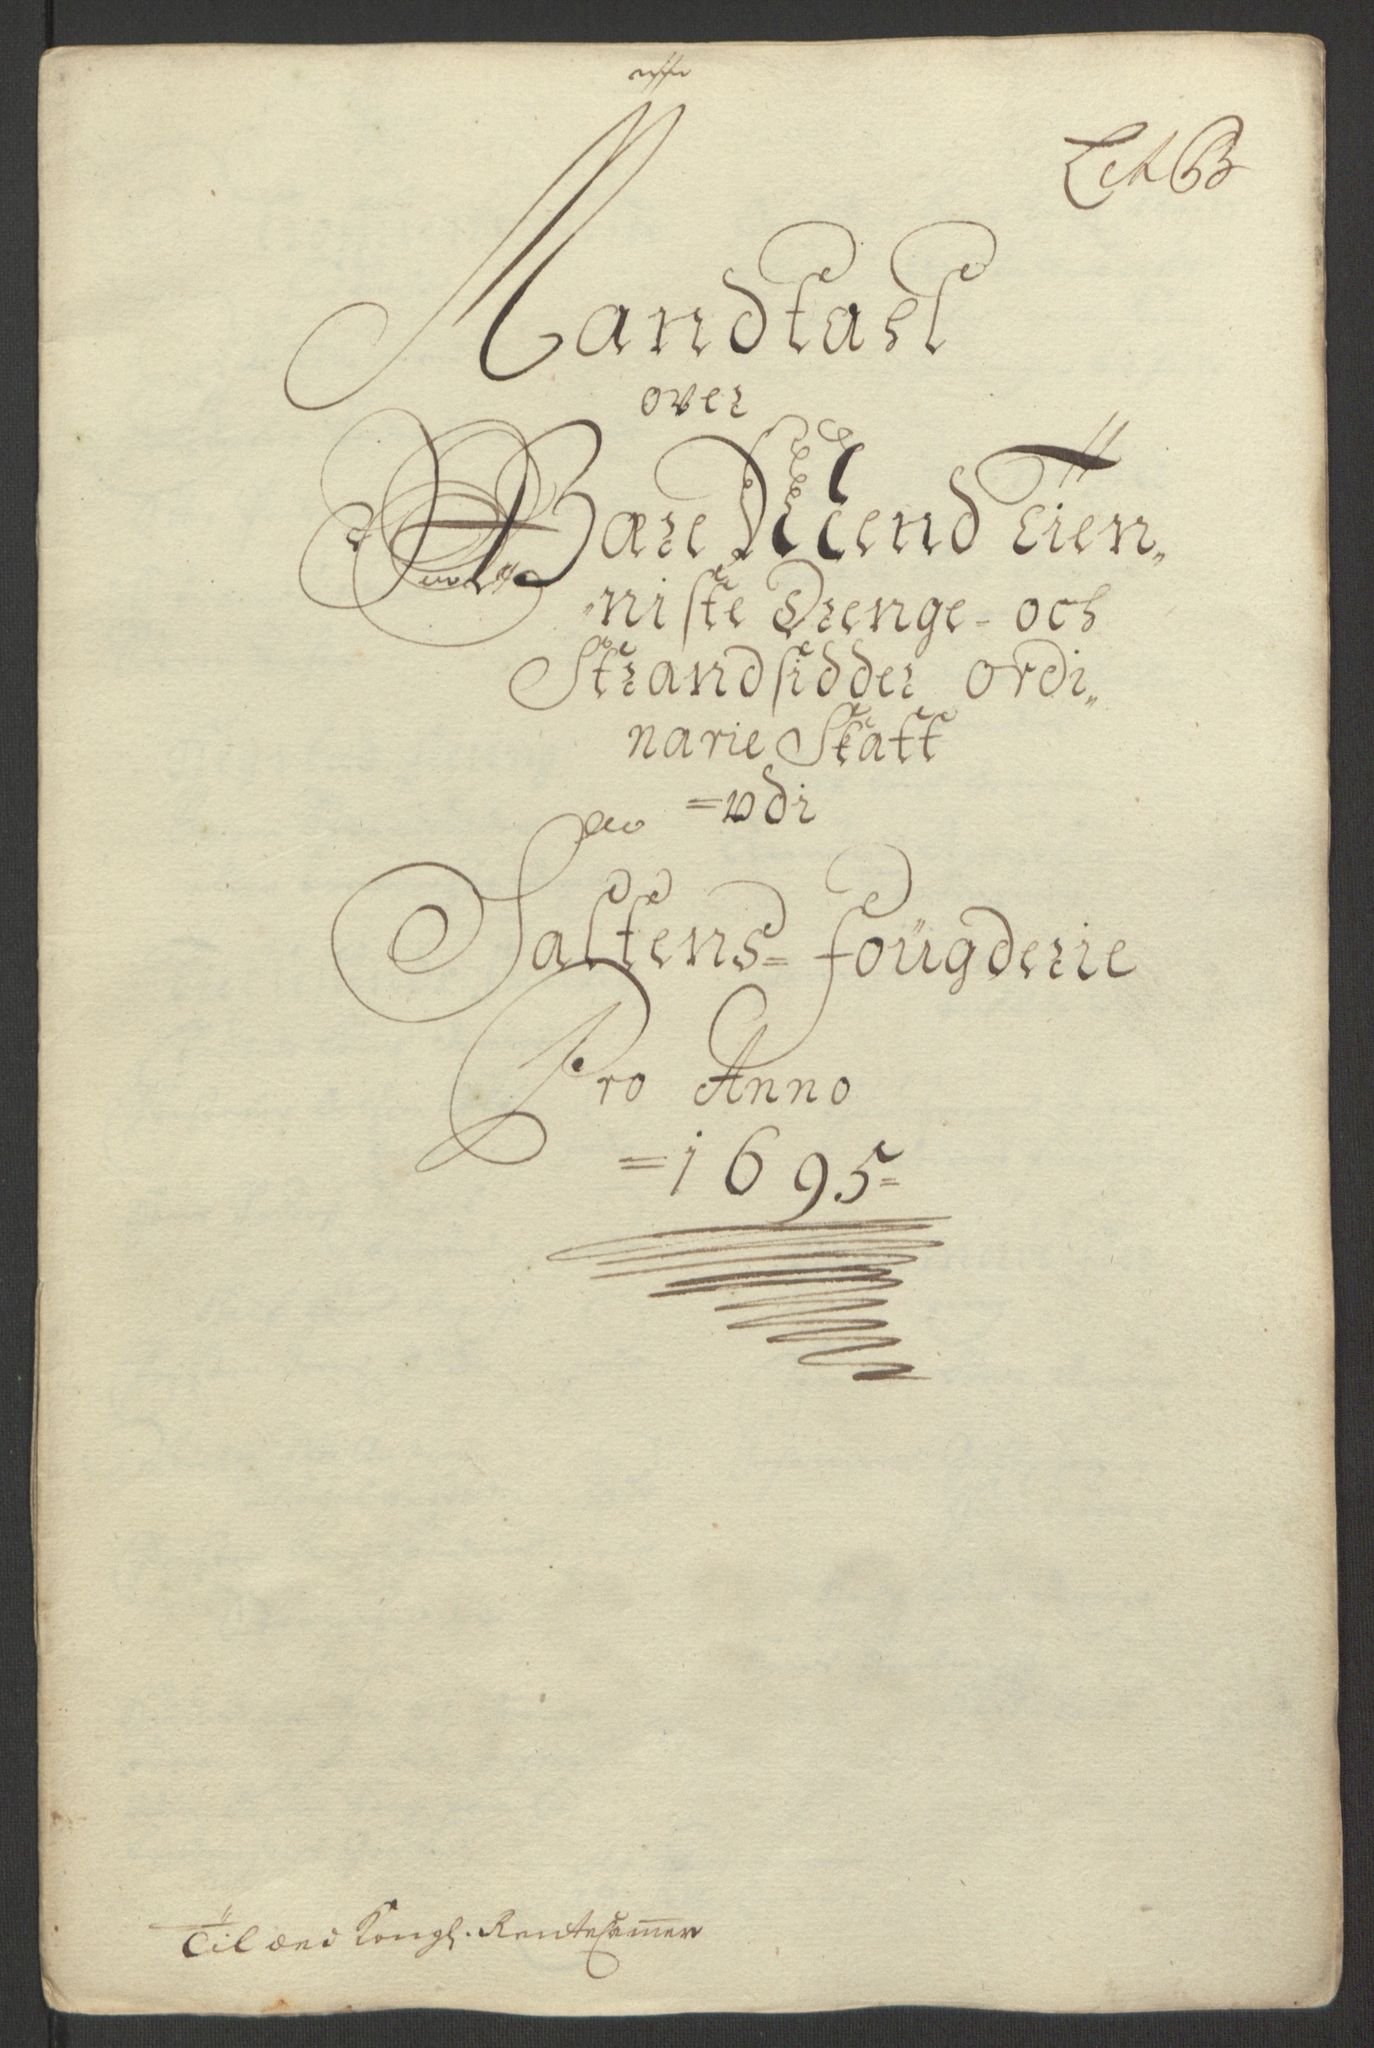 Lit B
Mandtael
over
Bare Mend Tien„
„niste Drenge- och
Strandsidder ordi„
narie Skatt
=udi
Saltens= fougderie
Pro Anno
=1695=
Til ded Kongl. Rentecammer